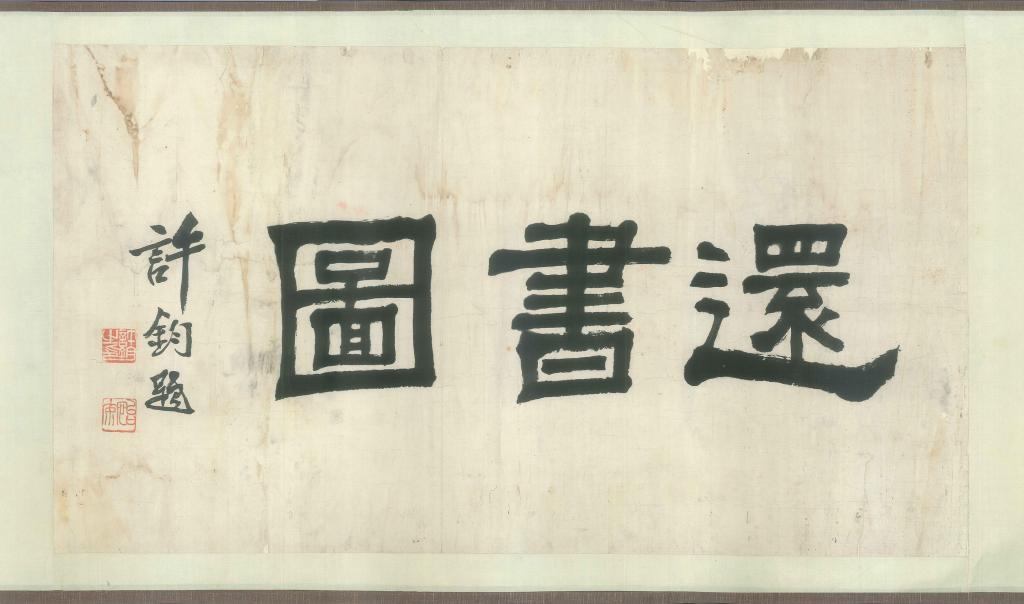 還書圖
許鈞題